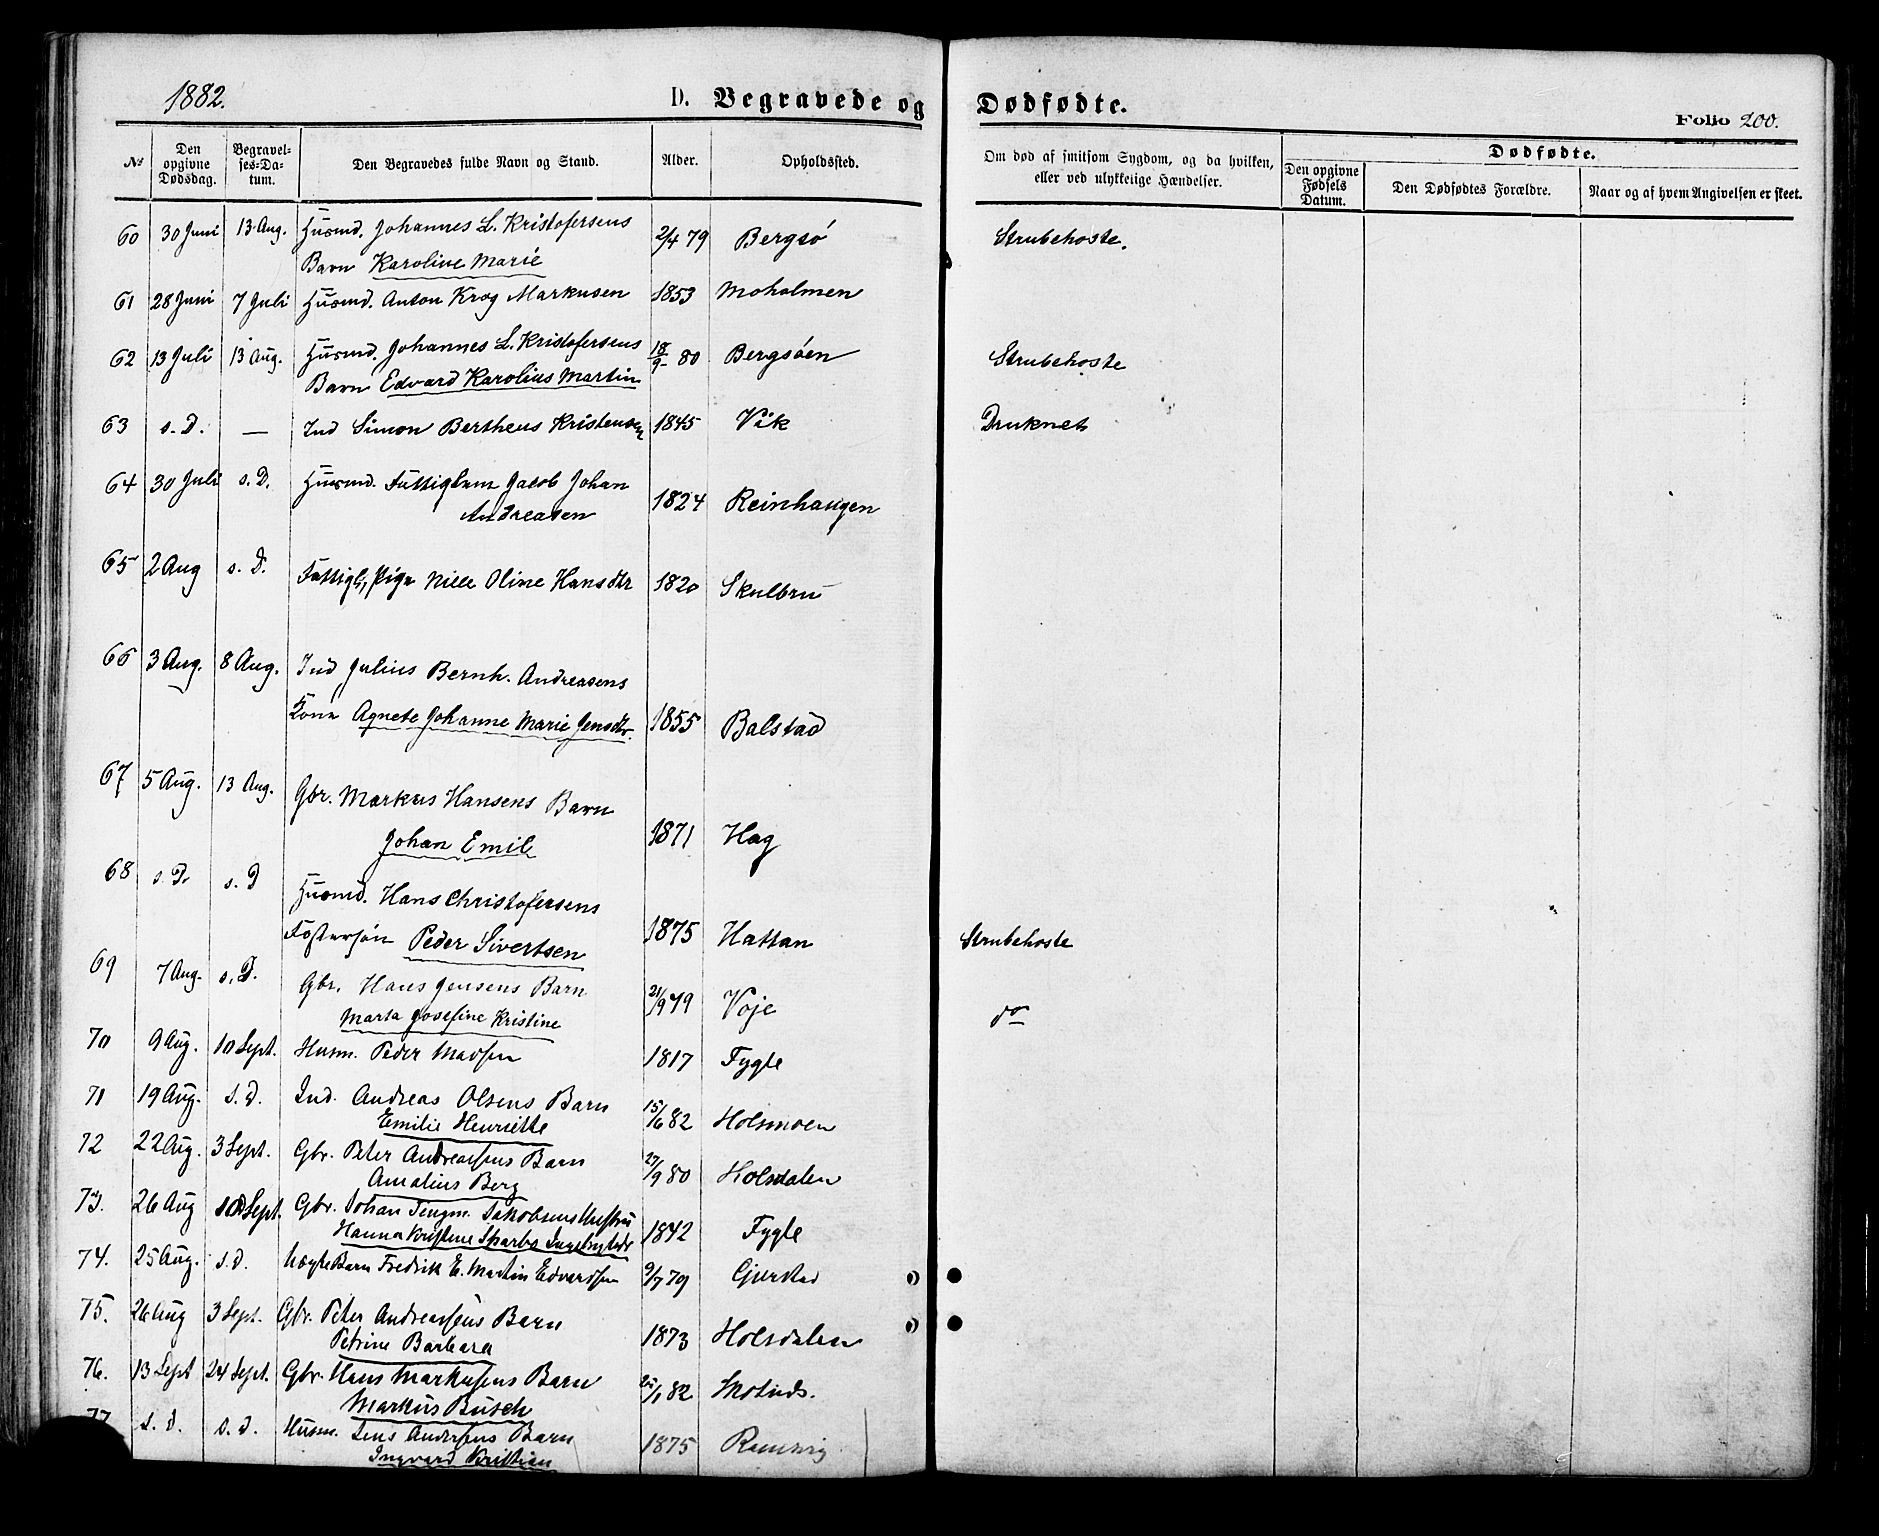 1882.
D. Begravede og Dødfødte.
Folio 200.
№
Den opgivne Dødsdag.
Begravelses-Datum.
Den Begravedes fulde Navn og Stand.
Alder.
Opholdssted.
Om død af smitsom Sygdom, og da hvilken, eller ved ulykkelige Hændelser.
Dødfødte.
Den opgivne Fødsels Datum.
Den Dødfødtes Forældre.
Naar og af hvem Angivelsen er skeet.
60 30 Juni 13 Aug. Husmd. Johannes L. Kristofersens 2/4 79 Bergsö Strubehoste.
Barn Karoline Marie
61 28 Juni 7 Juli Husmd. Anton Krog Markusen 1853 Moholmen
62 13 Juli 13 Aug. Husmd. Johannes L. Kristofersens 18/9 80 Bergsöen Strubehoste
Barn Edvard Karolius Martin
63 s. D. — Ind Simon Bertheus Kristensen 1845 Vik Druknet
64 30 Juli s. D. Husmd. Fattiglem Jacob Johan
Andreasen 1824 Reinhaugen
65 2 Aug s. D. Fattigl. Pige Nille Oline Hansdtr 1820 Skulbru
66 3 Aug. 8 Aug. Ind Julius Bernh. Andreasens
Kone Agnete Johanne Marie Jensdtr. 1855 Balstad
67 5 Aug. 13 Aug. Gbr. Markus Hansens Barn
Johan Emil 1871 Hag
68 s. D. s. D Husmd. Hans Christofersens
Fostersön Peder Sivertsen 1875 Hattan Strubehoste
69 7 Aug. s. D. Gbr. Hans Jensens Barn 21/9 79 Voje do
Marta Josefine Kristine
70 9 Aug. 10 Sept. Husm. Peder Madsen 1817 Fygle
71 19 Aug. s. d. Ind. Andreas Olsens Barn 15/6 82 Holsmoen
Emilie Henriette
72 22 Aug. 3 Sept. Gbr. Peter Andreassens Barn 27/9 80 Holsdalen
Amalius Berg
73. 26 Aug 10 Sept. Gbr. Johan Jakobsens Hustru
Hanna Kristine 1842 Fygle
74. 25 Aug. s. d. Barn Fredrik E. Martin Edvardsen 9/7 79 Gjerstad
75. 26 Aug 3 Sept. Gbr. Peter Andreassens Barn
Petrine Barbara 1873 Holsdalen
76. 13 Sept 24 Sept. Gbr. Hans Markussens Barn 82
Markus Busch
77 s. d. s. d. Husm. Jens Andersens Barn 1875
Ingvard Kristian